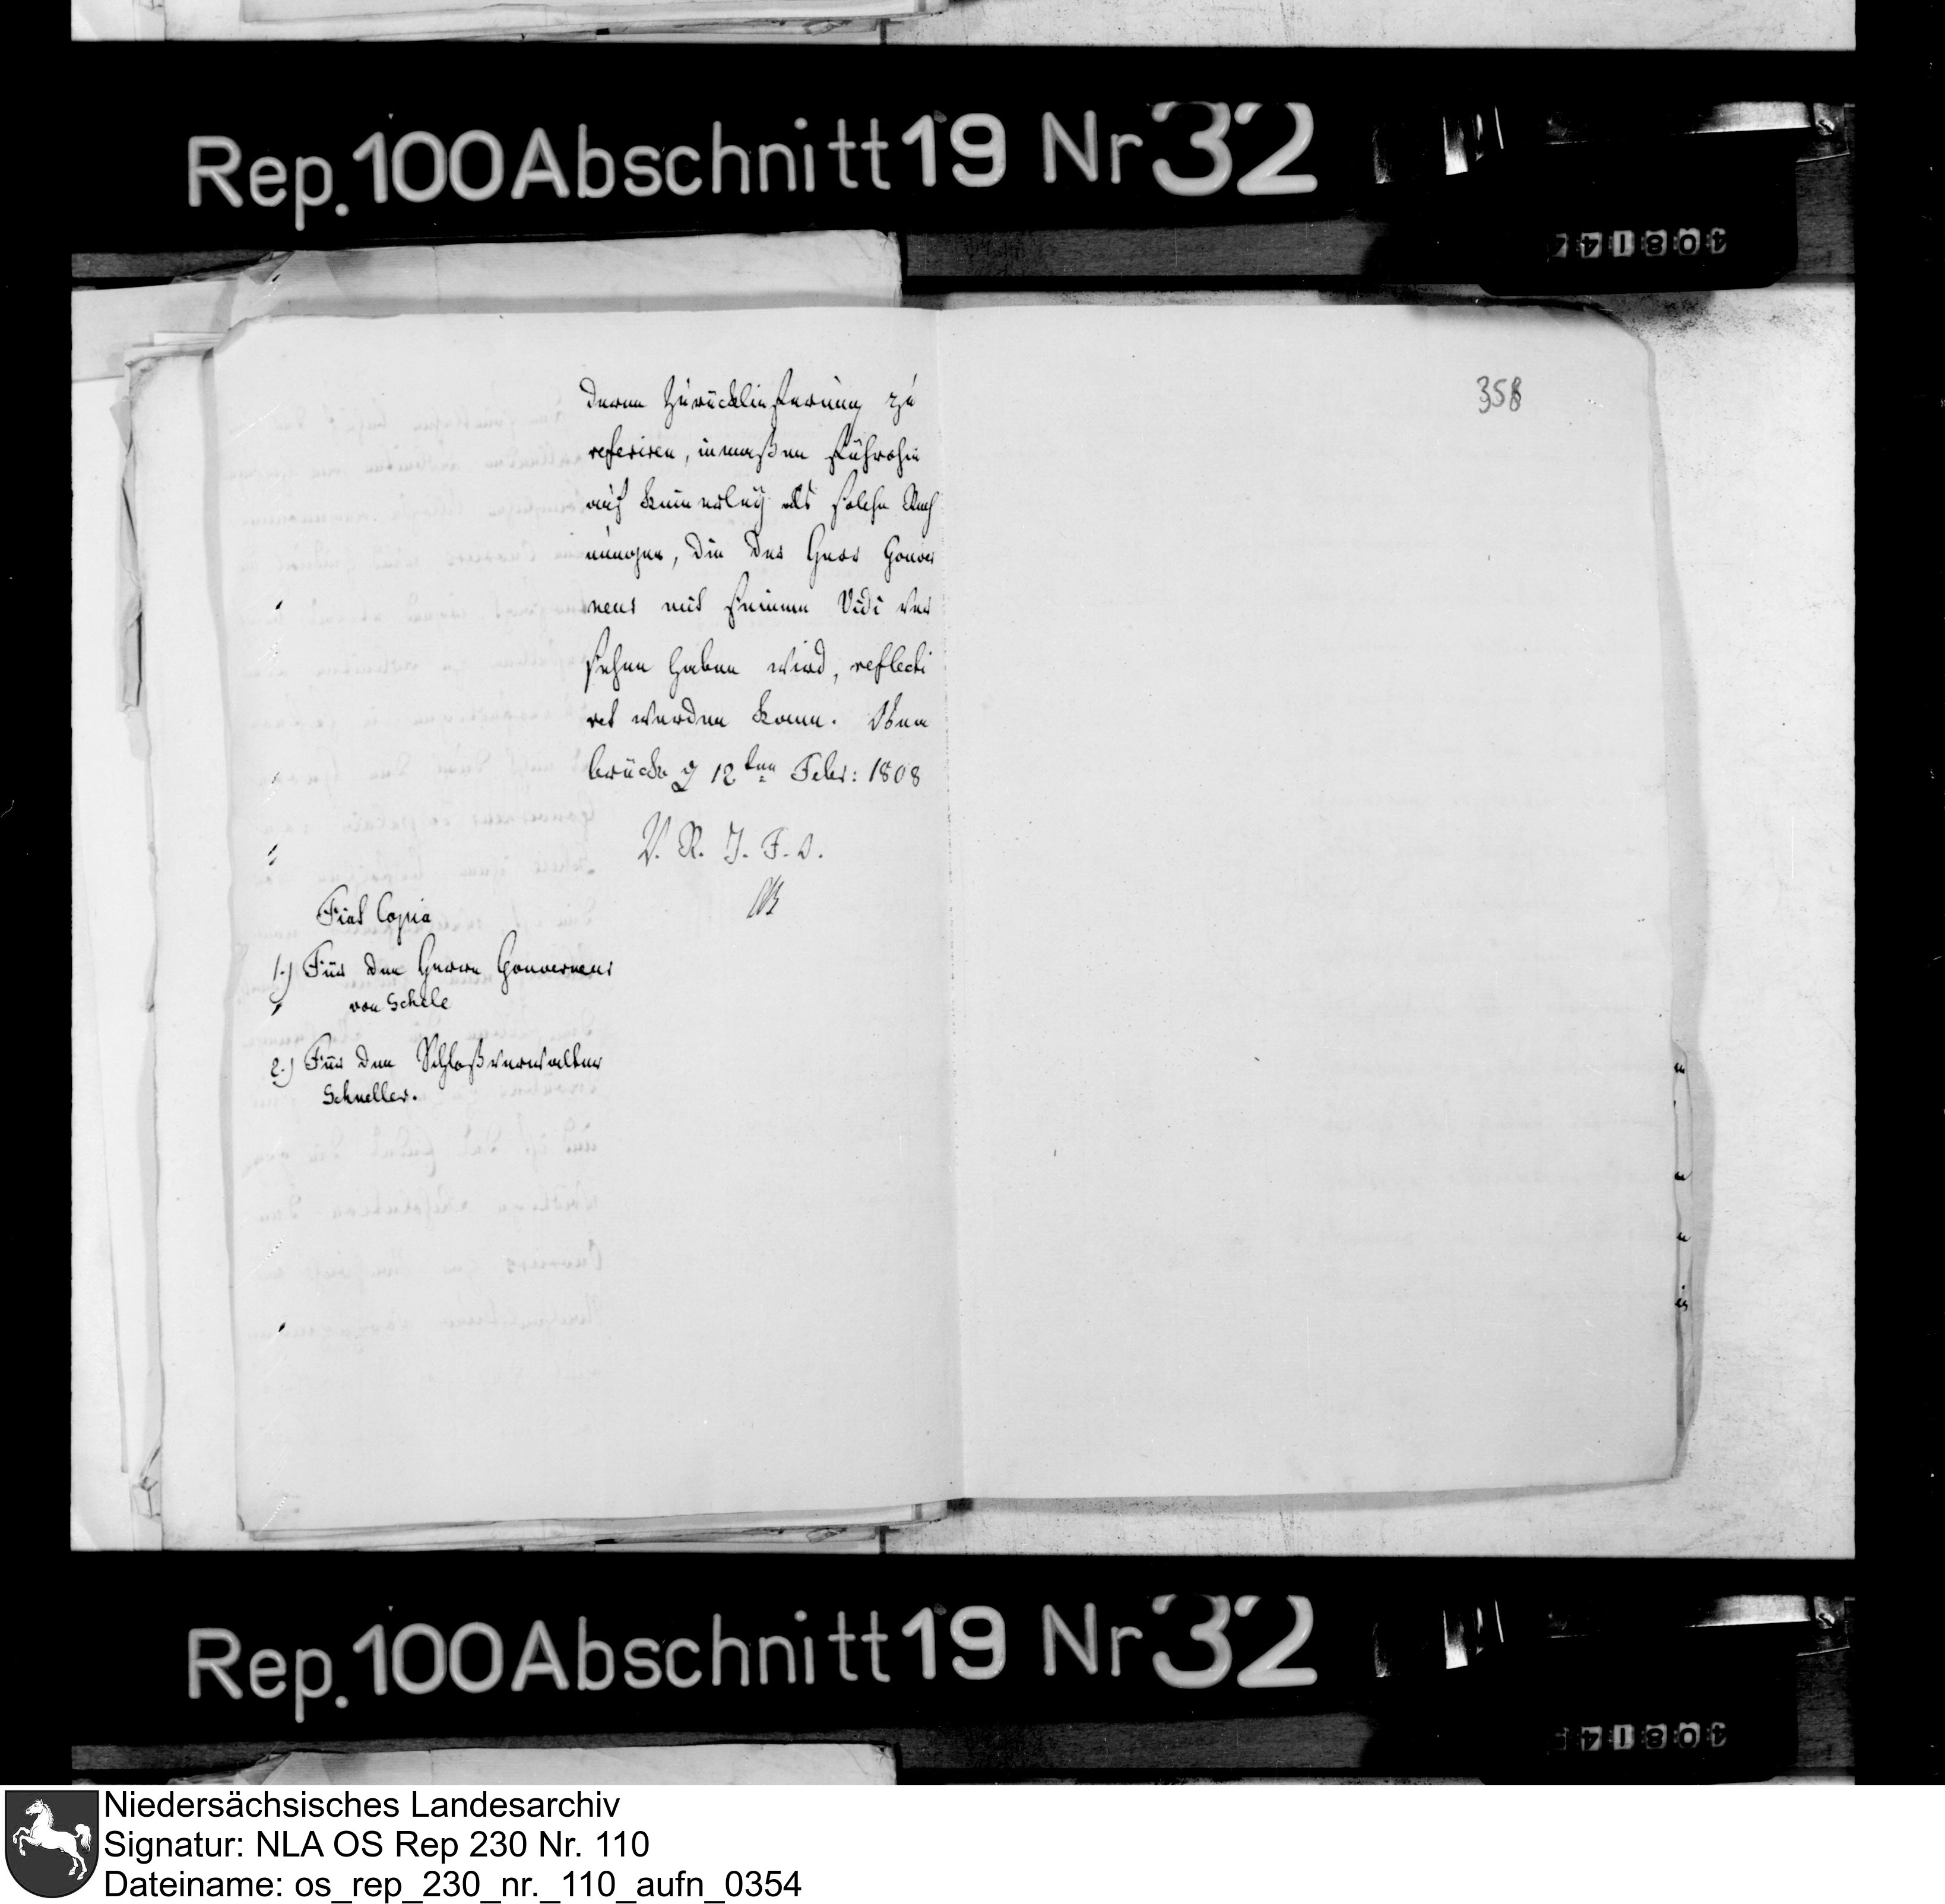 Rep. 100 Abschnitt 19 Nr 32
358
deren Zurücklieferung zu
referiren, inmaßen führohin
auf keinerley als solche Rech
nungen, die der Herr Gouver
neur mit seinem Vidi ver
sehen haben wird, reflecti
ret werden kann. Osna
brück d 12ten Febr: 1808
V. R. J. F. O.
Fiat Copia
1.) Für den Herrn Gouverneur
von Schele
2.) Für den Schloßverwalter
Schneller.
Rep. 100 Abschnitt 19 Nr 32
Niedersächsisches Landesarchiv
Signatur: NLA OS Rep 230 Nr. 110
Dateiname: os_rep_230_nr._110_aufn_0354